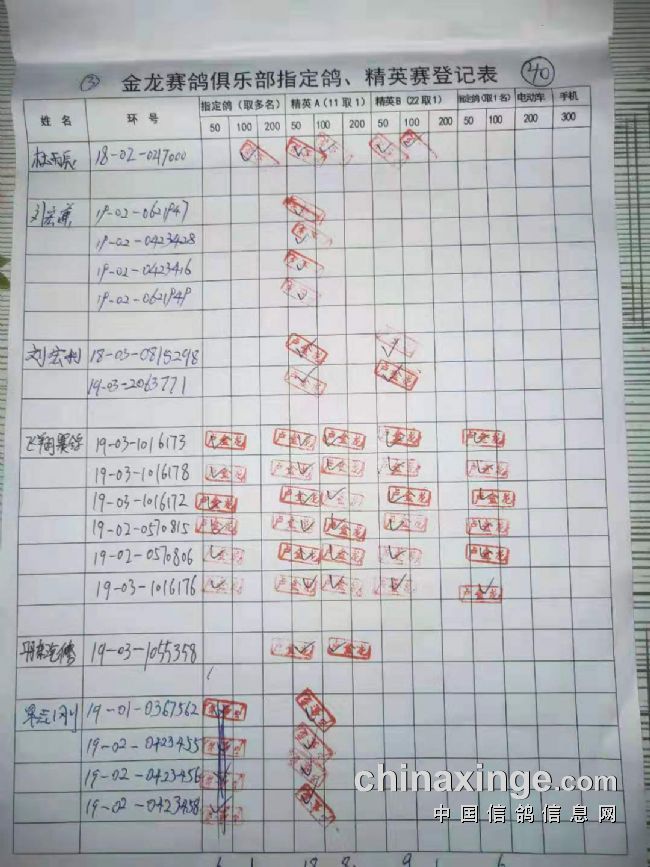 ③ 金龙赛鸽俱乐部指定鸽、精英赛登记表 240
姓名 环号 指定鸽(取多名) 精英A(11取1) 精英B(22取1) 指定鸽(取1名) 电动车 手机
50 100 200 50 100 200 50 100 200 50 100 200 300
18-02-047000
刘宏
19-02-0621947
19-02-0423428
19-02-0423416
19-02-0621949
刘宏利 18-03-0815298
19-03-2063771
飞翔赛鸽 19-03-1016173 卢金龙 卢金龙 卢金龙 卢金龙 卢金龙
19-03-1016178 卢金龙 卢金龙 卢金龙 卢金龙 卢金龙
19-03-1016172 卢金龙 卢金龙 卢金龙 卢金龙
19-02-0570815 卢金龙 卢金龙 卢金龙 卢金龙 卢金龙
19-02-0570806 卢金龙 卢金龙 卢金龙
19-03-1016176 卢金龙 卢金龙
19-03-1055358 卢金龙 卢金龙
19-01-0367562
19-02-0423455
19-02-0423456
19-02-0423458
chinaxinge.com
中国信鸽信息网